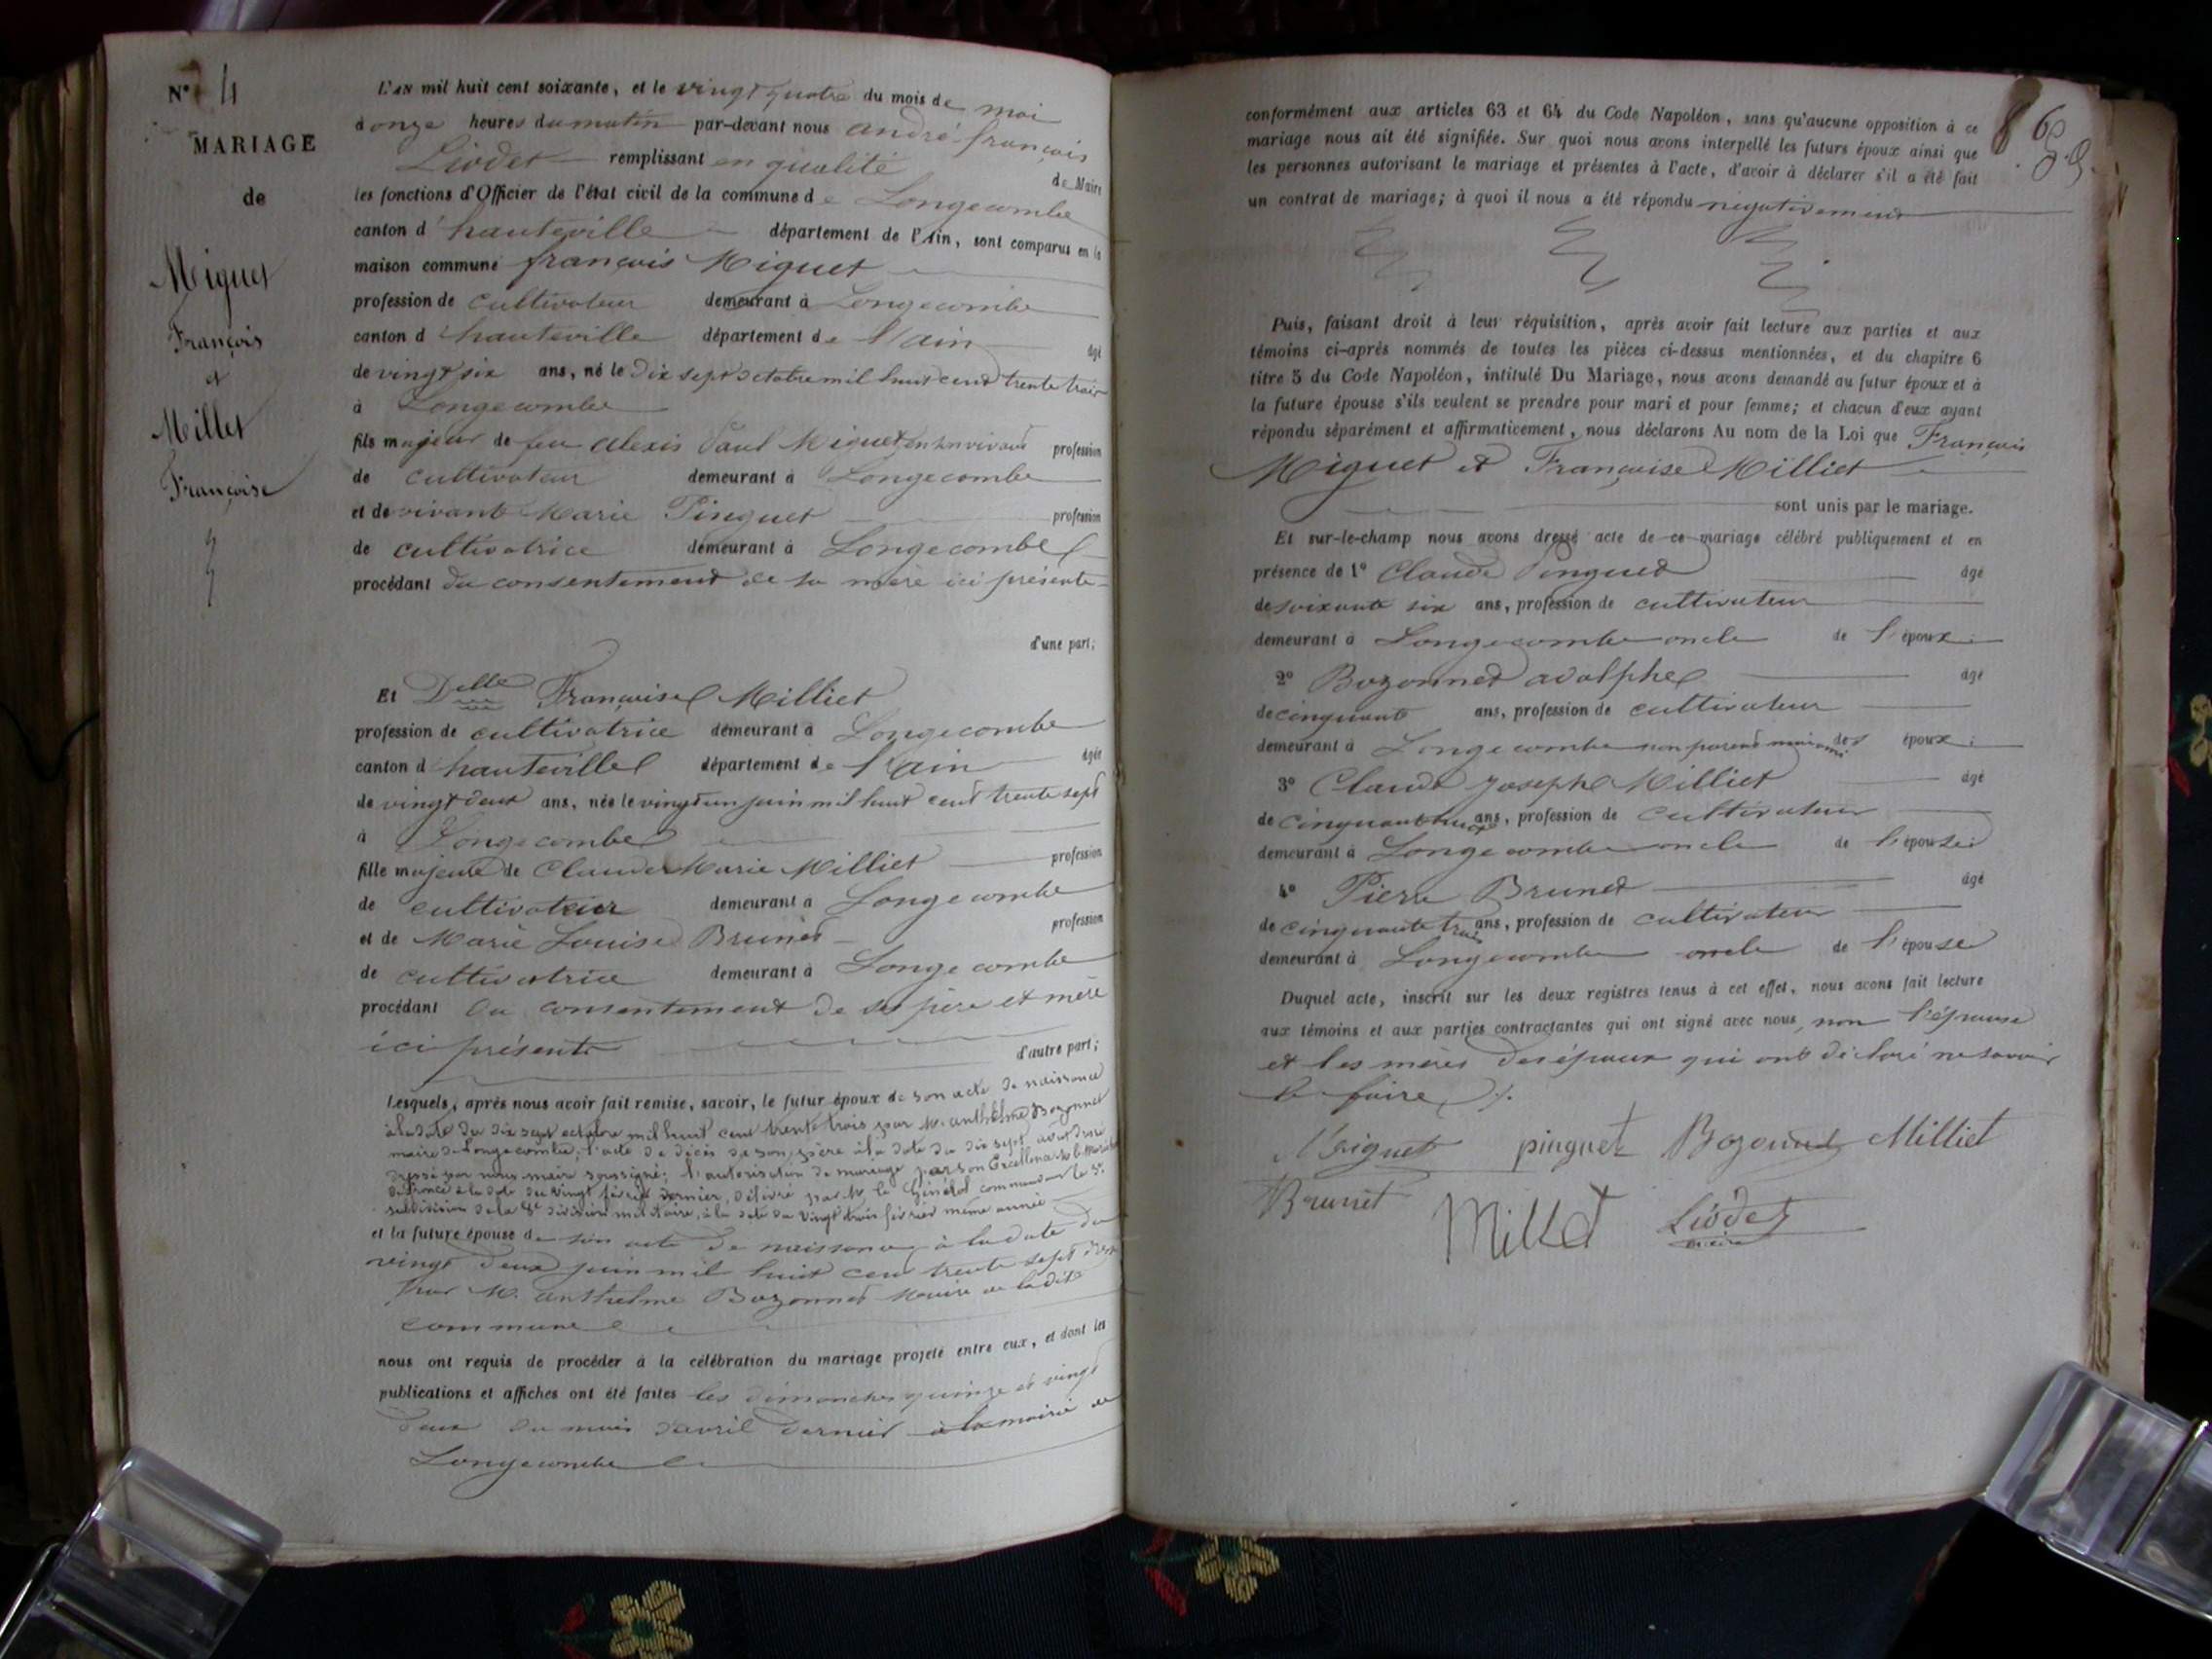 N° 4
MARIAGE
de
Miguet
François
et
Millet
Françoise
L'AN mil huit cent soixante, et le vingt quatre du mois de mai
à onze heures du matin par-devant nous andré françois
Liodet remplissant en qualité de Maire
les fonctions d'Officier de l'état civil de la commune de Longecombe
canton d'hauteville département de l'Ain, sont comparus en la
maison commune françois Miguet
profession de cultivateur demeurant à Longecombe
canton d'hauteville département de l'ain âgé
de vingt six ans, né le Dix sept octobre mil huit cent trente trois
à Longecombe
fils majeur de feu alexis Paul Miguet en son vivant profession
de cultivateur demeurant à Longecombe
et de vivante Marie Pinguet profession
de cultivatrice demeurant à Longecombe
procédant du consentement de sa mère ici présente
d'une part;
Et Delle Françoise Milliet
profession de cultivatrice demeurant à Longecombe
canton d'hauteville département de l'ain âgée
de vingt deux ans, née le vingt un juin mil huit cent trente sept
à Longecombe
fille majeure de Claude Marie Milliet profession
de cultivateur demeurant à Longecombe
et de Marie Louise Brunet profession
de cultivatrice demeurant à Longecombe
procédant du consentement de ses père et mère
ici présents
d'autre part;
Lesquels, après nous avoir fait remise, savoir, le futur époux de son acte de naissance
à la date du dix sept octobre mil huit cent trente trois par M. anthelme Bozonnet
maire de Longecombe; l'acte de décès de son père à la date du dix sept
dressé par nous maire soussigné; l'autorisation de mariage par son Excellence le Maréchal
de France à la date du vingt février dernier, délivré par M. le Général commandant la 3e
subdivision de la 8e division militaire, à la date du vingt trois février même année
et la future épouse de son acte de naissance à la date du
vingt deux juin mil huit cent trente sept
par M. anthelme Bozonnet Maire de la dite
commune
nous ont requis de procéder à la célébration du mariage projeté entre eux, et dont les
publications et affiches ont été faites les dimanches quinze et vingt
deux du mois d'avril dernier à la mairie de
Longecombe
conformément aux articles 63 et 64 du Code Napoléon, sans qu'aucune opposition à ce
mariage nous ait été signifiée. Sur quoi nous avons interpellé les futurs époux ainsi que
les personnes autorisant le mariage et présentes à l'acte, d'avoir à déclarer s'il a été fait
un contrat de mariage; à quoi il nous a été répondu négativement
Puis, faisant droit à leur réquisition, après avoir fait lecture aux parties et aux
témoins ci-après nommés de toutes les pièces ci-dessus mentionnées, et du chapitre 6
titre 5 du Code Napoléon, intitulé Du Mariage, nous avons demandé au futur époux et à
la future épouse s'ils veulent se prendre pour mari et pour femme; et chacun d'eux ayant
répondu séparément et affirmativement, nous déclarons Au nom de la Loi que François
Miguet et Françoise Milliet
sont unis par le mariage.
Et sur-le-champ nous avons dressé acte de ce mariage célébré publiquement et en
présence de 1° Claude Pinguet âgé
de soixante six ans, profession de cultivateur
demeurant à Longecombe oncle de l'époux;
2° Bozonnet adolphe âgé
de cinquante ans, profession de cultivateur
demeurant à Longecombe non parent mais ami des époux;
3° Claude Joseph Milliet âgé
de cinquante ans, profession de cultivateur
demeurant à Longecombe oncle de l'épouse;
4° Pierre Brunet âgé
de cinquante trois ans, profession de cultivateur
demeurant à Longecombe oncle de l'épouse
Duquel acte, inscrit sur les deux registres tenus à cet effet, nous avons fait lecture
aux témoins et aux parties contractantes qui ont signé avec nous, non l'épouse
et les mères des époux qui ont déclaré ne savoir
le faire
Miguet pinguet Bozonnet Milliet
Brunet Millet Liodet
maire